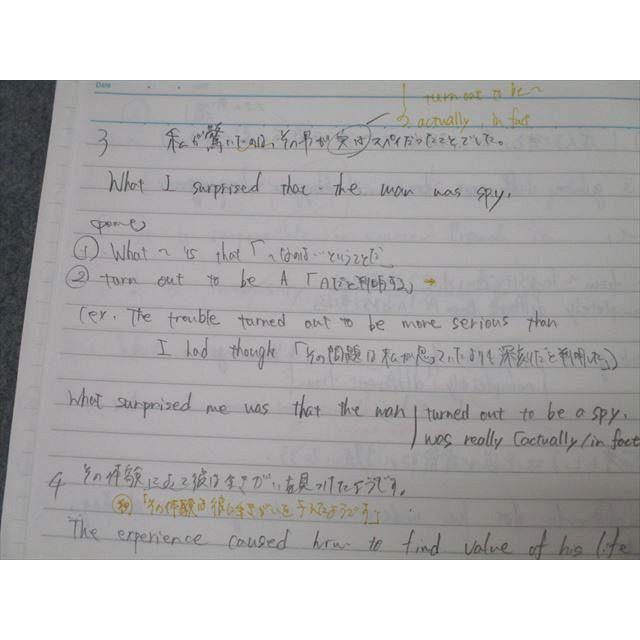 Date
turn out to be ~
actually, in fact
3 私が驚いたのは、その男が実はスパイだったことでした。
What I surprised that the man was spy.
① What ~ is that 「~なのは…ということだ」
② turn out to be A 「Aだと判明する」 →
(ex. The trouble turned out to be more serious than
I had though 「その問題は私が思っていたよりも深刻だと判明した」)
What surprised me was that the man turned out to be a spy.
was really [actually/in fact
4 その体験によって彼は生きがいを見つけたようです。
「その体験は彼に生きがいを 」
The experience caused him to find value of his life